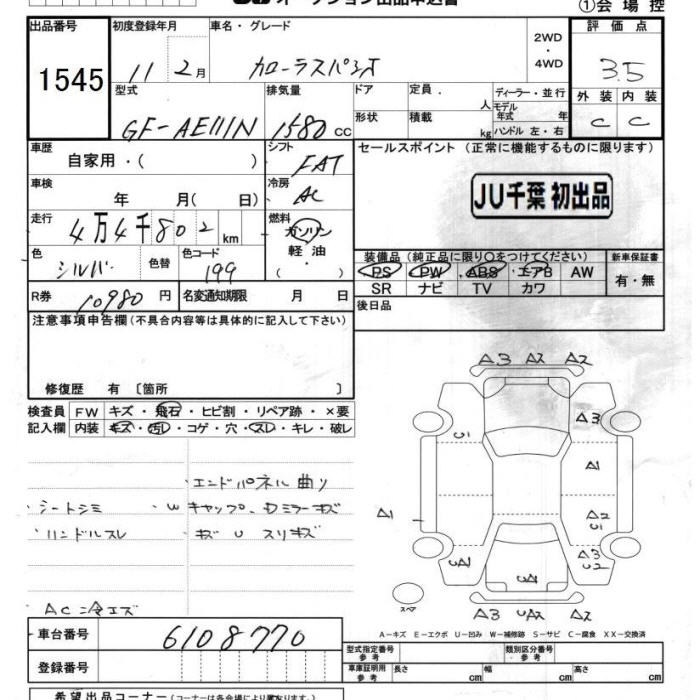 オークション出品申込書
①会場控
出品番号
1545
初度登録年月
車名・グレード
11 2月
カローラスパシオ
2WD
・
4WD
評価点
3.5
外装 内装
C C
型式
GF-AE111N
排気量
1580 cc
ドア
形状
定員
人
積載
kg
ディーラー・並行
モデル
年式 年
ハンドル 左・右
車歴
自家用・( )
シフト
FAT
セールスポイント (正常に機能するものに限ります)
JU千葉 初出品
車検
年 月( 日)
冷房
AC
走行
4万4千802 km
燃料
ガソリン
軽油
( )
色
シルバ
色替
色コード
199
装備品(純正品に限り○をつけてください)
PS PW ABS エアB AW
SR ナビ TV カワ
新車保証書
有・無
R券
10980 円
名変通知期限 月 日
後日品
注意事項申告欄(不具合内容等は具体的に記入して下さい)
修復歴 有 〔箇所 〕
検査員
記入欄
FW キズ・飛石・ヒビ割・リペア跡・×要
内装 キズ・汚レ・コゲ・穴・スレ・キレ・破レ
エンドパネル曲り
シートシミ
W キャップ、Dミラーキズ
ハンドルスレ
キズ U スリキズ
AC冷エズ
A3 A2 A2
A3
U1
A1
A1
A2
U1
A3
U2
UA1
スペア
A3 UA2 A2
A－キズ E－エクボ U－凹み W－補修跡 S－サビ C－腐食 XX－交換済
車台番号
6108770
登録番号
型式指定番号
参考
類別区分番号
参考
車庫証明用
参考
長さ cm
幅 cm
高さ cm
希望出品コーナー(コーナーは各会場により異なります)